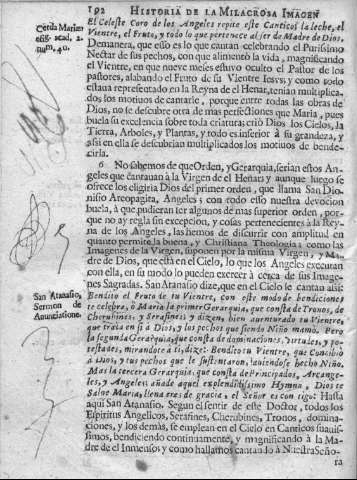 192 HISTORIA DE LA MILAGROSA IMAGEN
Cerda Marian.
effig. acad. 2.
num. 40.
El Celeste Coro de los Angeles repite este Cantico: la leche, el
Vientre, el Fruto, y todo lo que pertenece al ser de Madre de Dios.
Demanera, que esso es lo que cantan celebrando el Purissimo
Nectar de sus pechos, con que alimentò la vida, magnificando
el Vientre, en que nueve meses estuvo oculto el Pastor de los
pastores, alabando el Fruto de su Vientre Iesvs; y como todo
estava representado en la Reyna de el Henar, tenian multiplica-
dos los motivos de cantarle, porque entre todas las obras de
Dios, no se descubre otra de mas perfecciones que Maria, pues
buela su excelencia sobre toda criatura; criò Dios los Cielos, la
Tierra, Arboles, y Plantas, y todo es inferior à su grandeza, y
assi en ella se descubrian multiplicados los motivos de bende-
cirla.
6 No sabemos de que Orden, y Gerarquia, serian estos An-
geles que cantauan à la Virgen de el Henar; y aunque luego se
ofrece los eligiria Dios del primer orden, que llama San Dio-
nisio Areopagita, Angeles; con todo esso nuestra devocion
buela, à que pudieran ler algunos de mas superior orden, por-
que no ay regla sin excepcion, y cosas pertenecientes à la Rey-
na de los Angeles, las hemos de discurrir con amplitud en
quanto permite la buena, y Christiana Theologia: como las
Imagenes de la Virgen, suponen por la misma Virgen, y Ma-
dre de Dios, que està en el Cielo, lo que los Angeles executan
con ella, en su modo lo pueden exercer à cerca de sus Image-
nes Sagradas. San Atanasio dize, que en el Cielo le cantan assi:
San Atanasio,
Sermon de
Anuntiatione.
Bendito el Fruto de tu Vientre, con este modo de bendiciones
te celebra, ò Maria la primer Gerarquia, que consta de Tronos, de
Cherubines, y Serafines; y dizen, bien aventurado tu Vientre,
que traia en si à Dios, y los pechos que siendo Niño mamò. Pero
la segunda Gerarquia, que consta de dominaciones, Virtudes, y po-
testades, mirandote à ti, dize: Bendito tu Vientre, que Concibiò
à Dios, y tus pechos que le sustentaron, aviendose hecho Niño.
Mas la tercera Gerarquia, que consta de Principados, Arcange-
les, y Angeles; añade aquel esplendidissimo Hymno, Dios te
Salve Maria, llena eres de gracia, el Señor es con tigo: Hasta
aqui San Atanasio. Segun el sentir de este Doctor, todos los
Espiritus Angelicos, Serafines, Cherubines, Tronos, domina-
ciones, y los demàs, se emplean en el Cielo en Canticos suauis-
simos, bendiciendo continuamente, y magnificando à la Ma-
dre de el Inmenso; y como hallamos cantando à Nuestra Seño-
ra